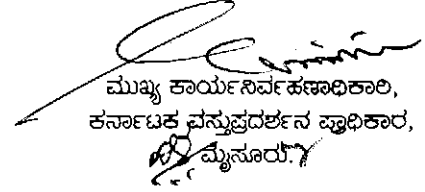 ಮುಖ್ಯ ಕಾರ್ಯನಿರ್ವಹಣಾಧಿಕಾರಿ,
ಕರ್ನಾಟಕ ವಸ್ತುಪ್ರದರ್ಶನ ಪ್ರಾಧಿಕಾರ,
ಮೈಸೂರು.